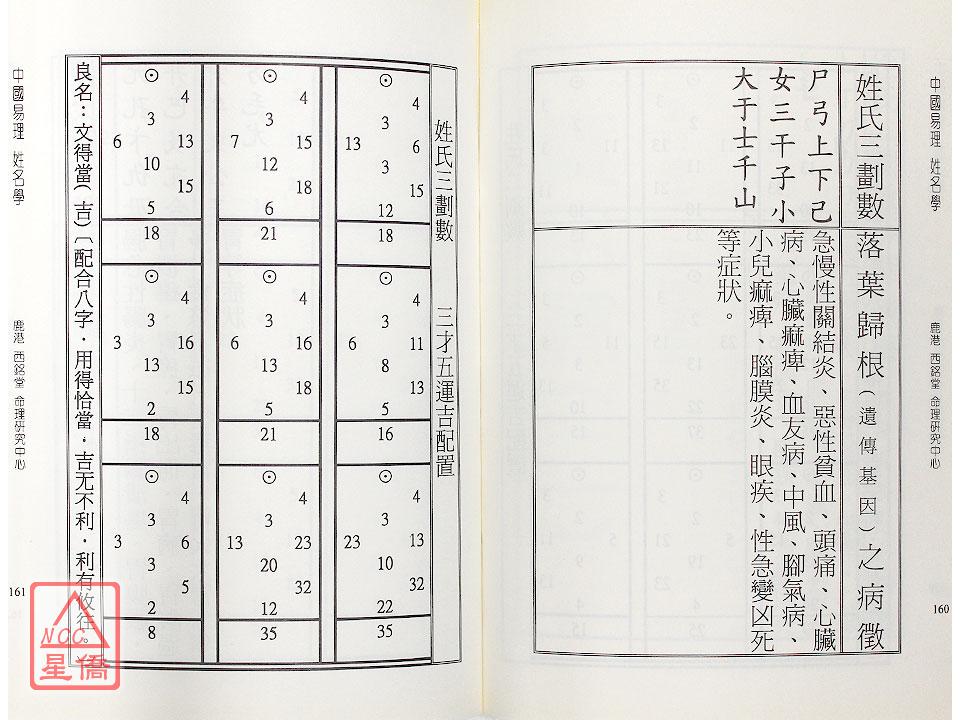 中國易理 姓名學
鹿港 西銘堂 命理研究中心
160
姓氏三劃數
尸弓上下己
女三干子小
大于士千山
落葉歸根(遺傳基因)之病徵
急慢性關結炎、惡性貧血、頭痛、心臟
病、心臟痲痺、血友病、中風、腳氣病、
小兒痲痺、腦膜炎、眼疾、性急變凶死
等症狀。
姓氏三劃數 三才五運吉配置
⊙
4
3
13 6
3
15
12
18
⊙
4
3
6 11
8
13
5
16
⊙
4
3
23 13
10
32
22
35
⊙
4
3
7 15
12
18
6
21
⊙
4
3
6 16
13
18
5
21
⊙
4
3
13 23
20
32
12
35
⊙
4
3
6 13
10
15
5
18
⊙
4
3
3 16
13
15
2
18
⊙
4
3
3 6
3
5
2
8
良名:文得當(吉)〔配合八字·用得恰當·吉无不利·利有攸往。
中國易理 姓名學
鹿港 西銘堂 命理研究中心
161
NCC
星僑